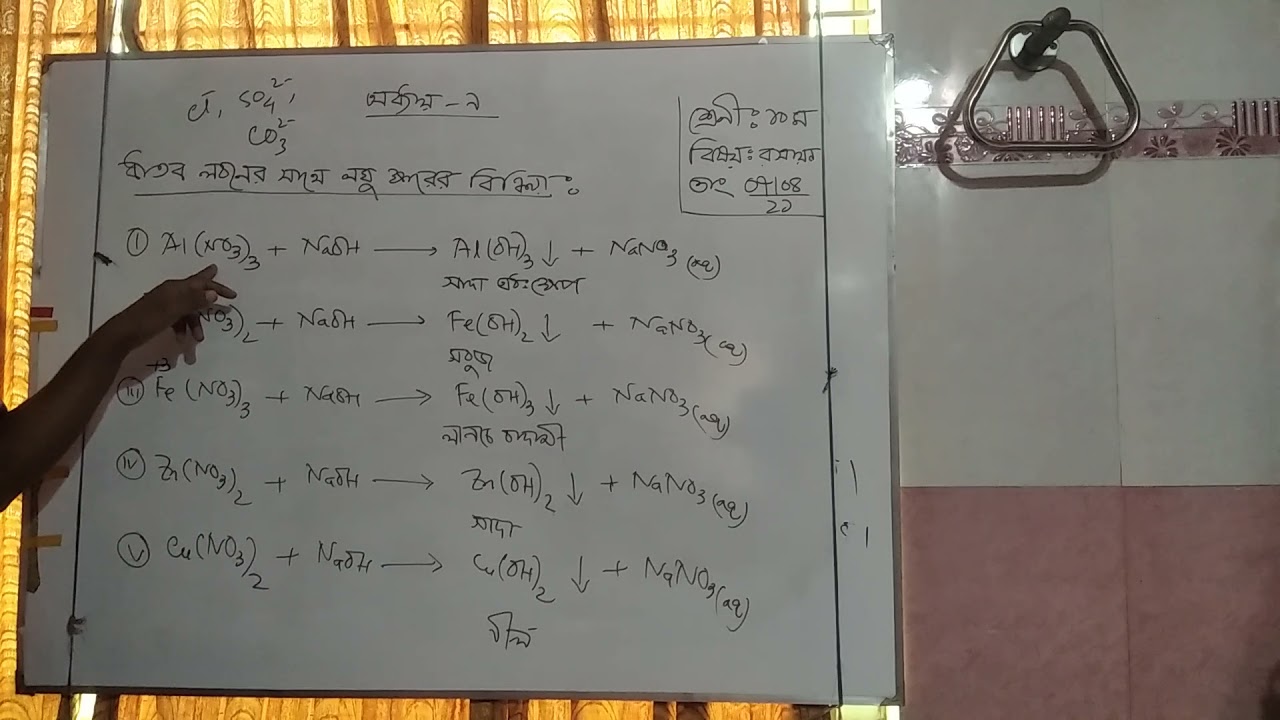 Cl⁻, SO₄²⁻,
CO₃²⁻
অধ্যায় - ৯
শ্রেণী: ১০ম
বিষয়: রসায়ন
তাং ০৭/০৪
২১
ধাতব লবনের সাথে লঘু ক্ষারের বিক্রিয়া:
i Al(NO₃)₃ + NaOH ⟶ Al(OH)₃↓ + NaNO₃(aq)
সাদা অধঃক্ষেপ
(NO₃)₂ + NaOH ⟶ Fe(OH)₂↓ + NaNO₃(aq)
সবুজ
+3
iii Fe(NO₃)₃ + NaOH ⟶ Fe(OH)₃↓ + NaNO₃(aq)
লালচে বাদামী
iv Zn(NO₃)₂ + NaOH ⟶ Zn(OH)₂↓ + NaNO₃(aq)
সাদা
v Cu(NO₃)₂ + NaOH ⟶ Cu(OH)₂↓ + NaNO₃(aq)